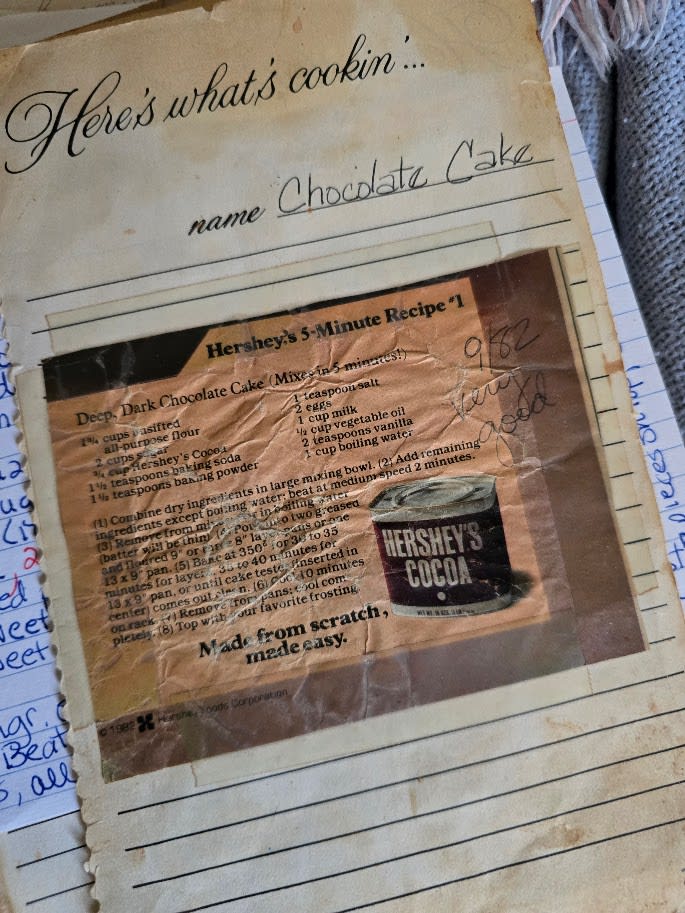 Here's what's cookin'...
name Chocolate Cake
Hershey's 5-Minute Recipe #1
9/82
Very
good
Deep, Dark Chocolate Cake (Mixes in 5 minutes!)
1¾ cups unsifted
all-purpose flour
2 cups sugar
¾ cup Hershey's Cocoa
1½ teaspoons baking soda
1½ teaspoons baking powder
1 teaspoon salt
2 eggs
1 cup milk
½ cup vegetable oil
2 teaspoons vanilla
1 cup boiling water
(1) Combine dry ingredients in large mixing bowl. (2) Add remaining
ingredients except boiling water; beat at medium speed 2 minutes.
(3) Remove from in boiling water
(batter will be thin). two greased
and floured 9" or 8" layer pans or one
13 x 9" pan. (5) Bake at 350° for 30 to 35
minutes for layers, 35 to 40 minutes for
13 x 9" pan, or until cake tester inserted in
center) comes out clean. (6) Cool 10 minutes
on rack. (7) Remove from pans; cool com-
pletely. (8) Top with your favorite frosting.
HERSHEY'S
COCOA
Made from scratch,
made easy.
© 1982 Hershey Foods Corporation
Beat
, all